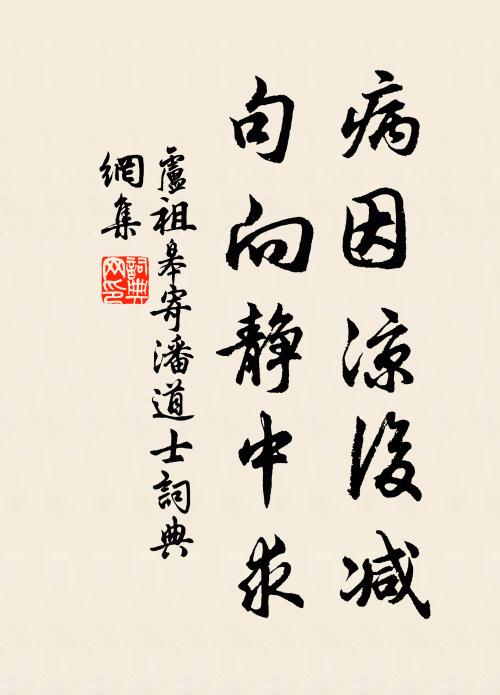 病因凉後减
句向静中求
盧祖皋寄潘道士詞典
網集
詞典
网印